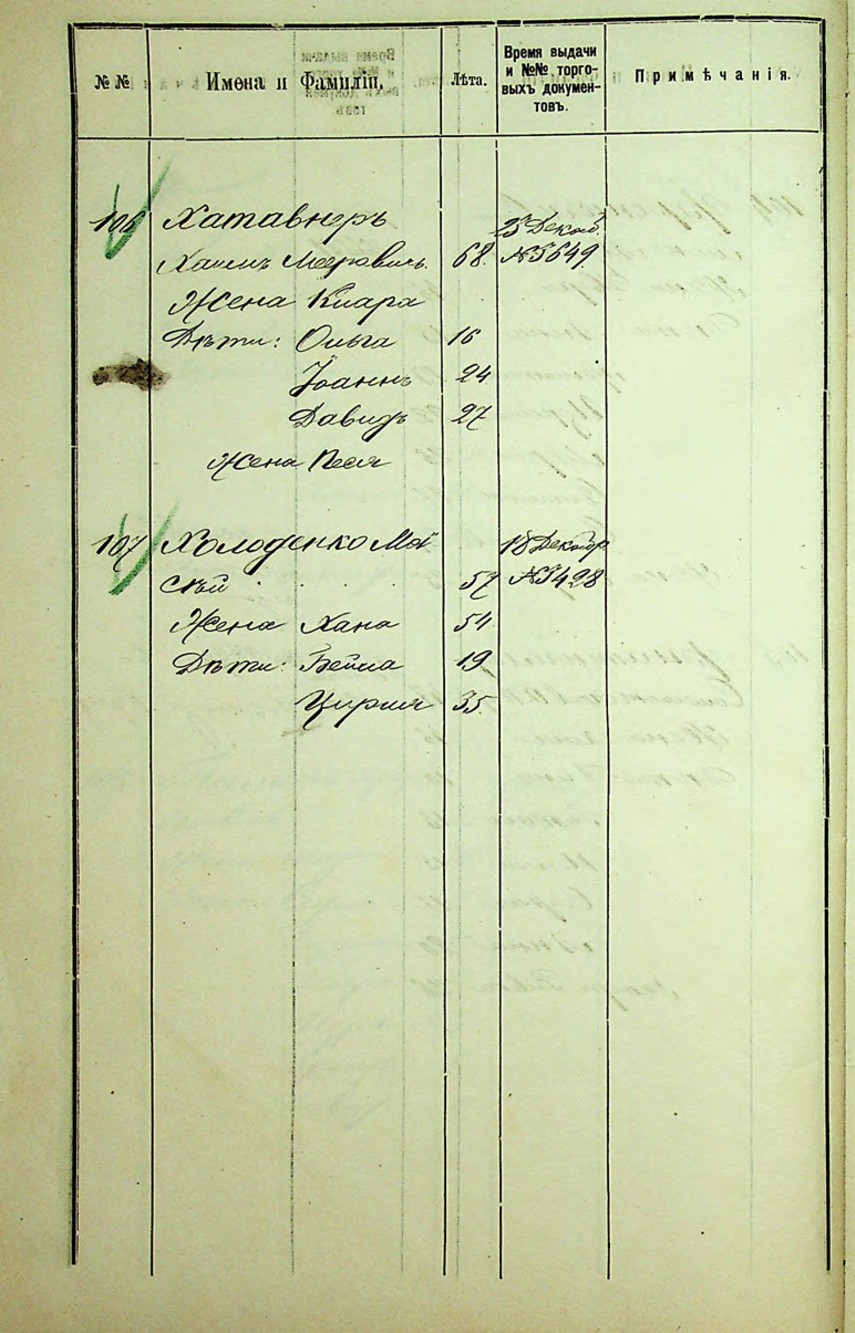 № №
Имена и Фамиліи.
Лѣта.
Время выдачи
и №№ торго-
выхъ докумен-
товъ.
Примѣчанія.
106 Хатавнеръ 23 Декаб.
Хаимъ Мееровичъ. 68. №3649.
Жена Клара
Дѣти: Ольга 16
Іоаннъ 24
Давидъ 27
Жена Песя
107 Холоденко Мой 18 Декабр
сѣй 57 №3428
Жена Хана 54
Дѣти: Бейла 19
Цирля 35